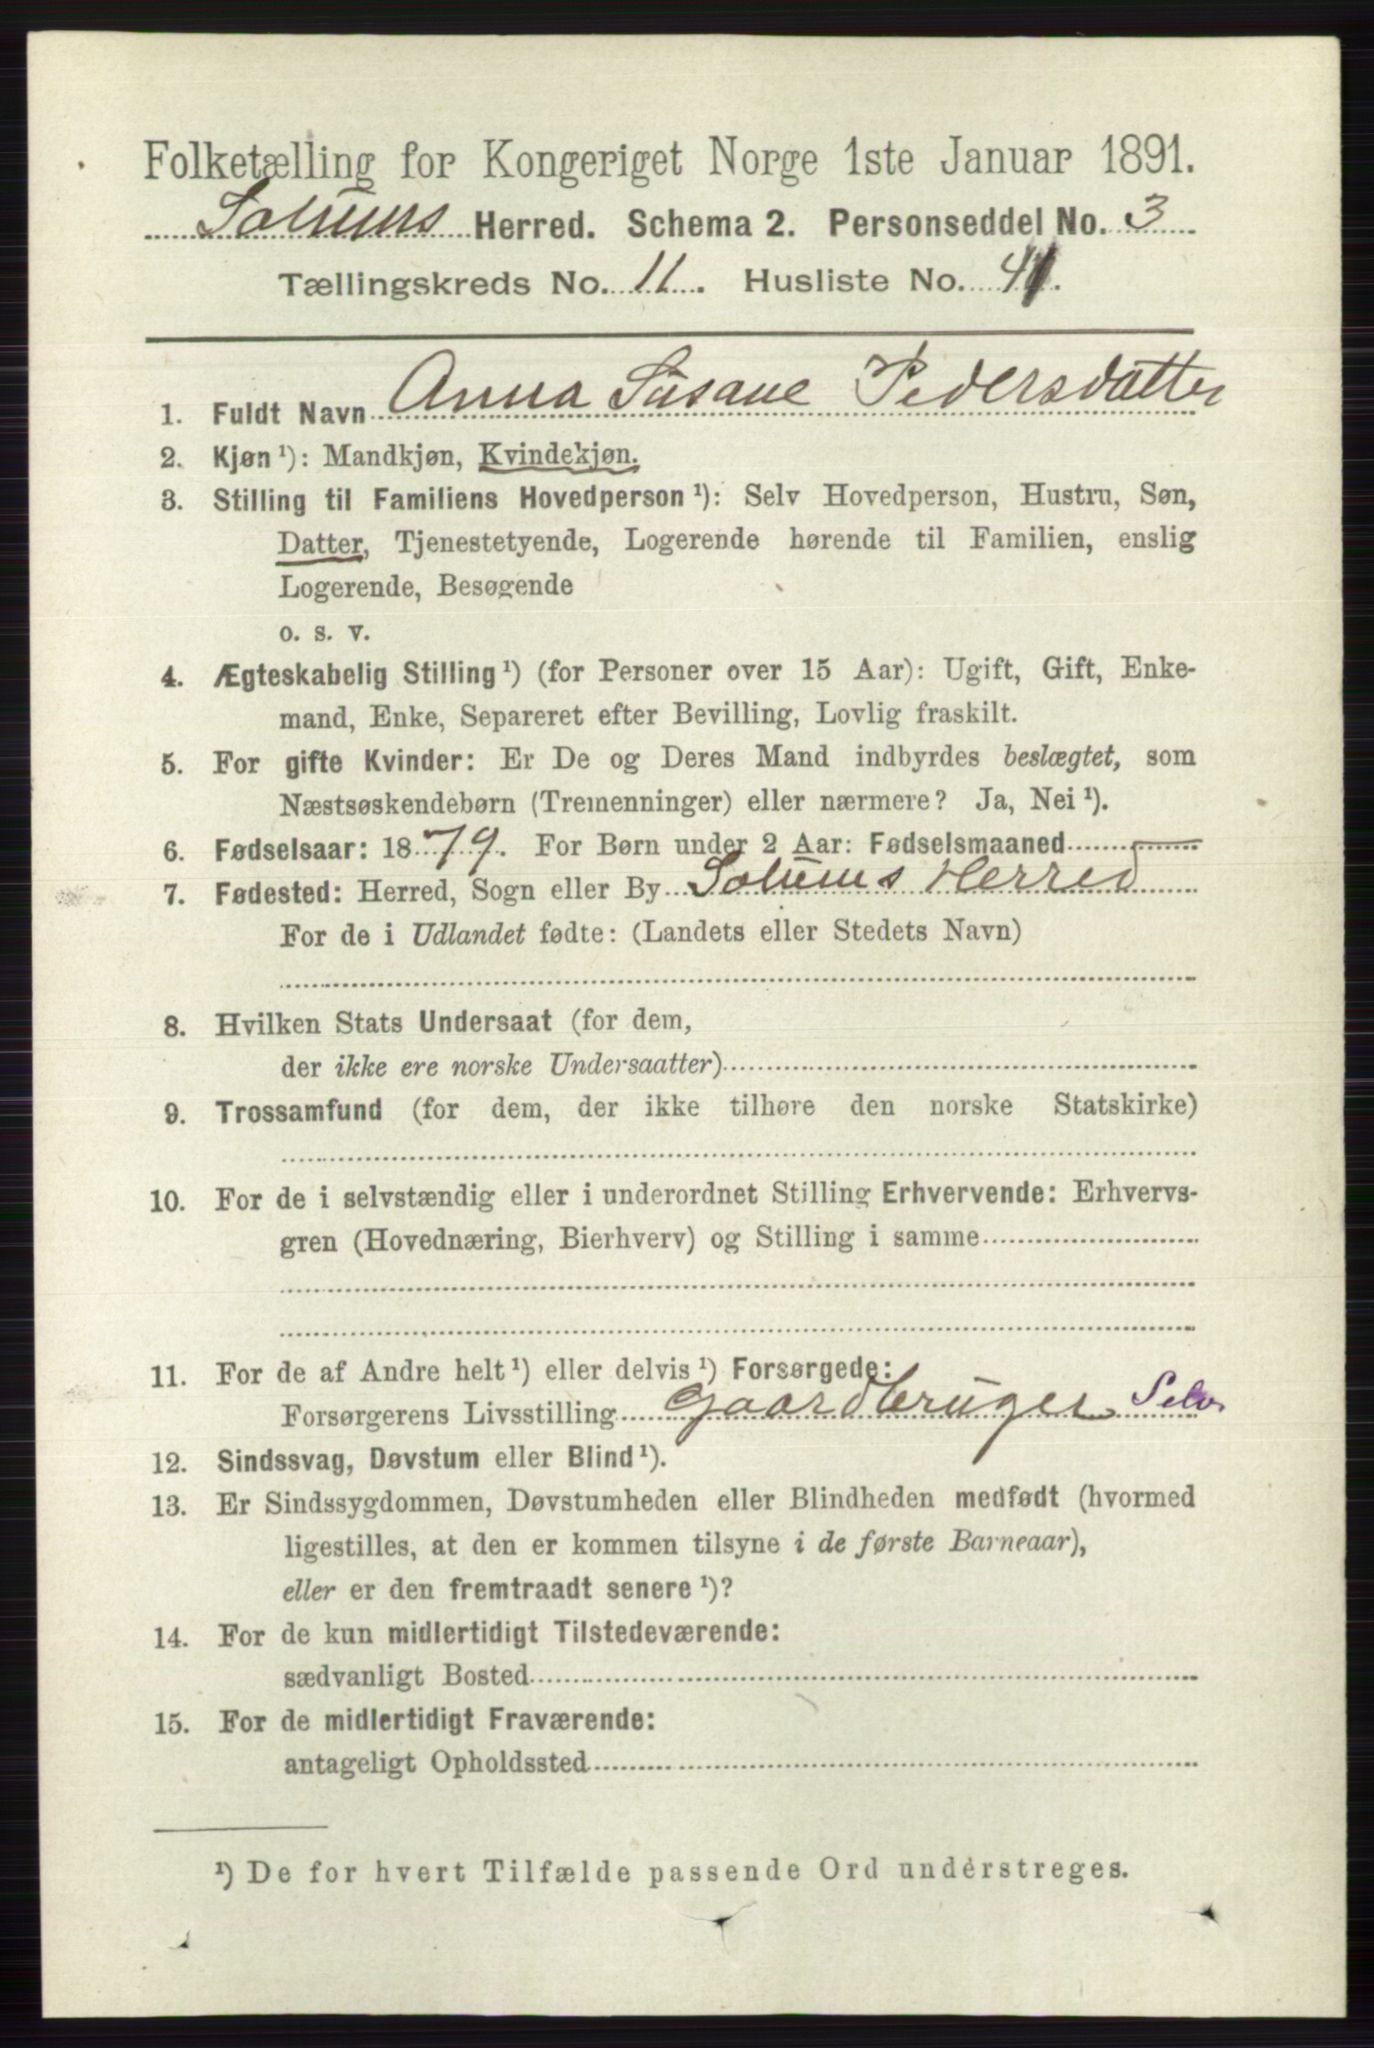 Folketælling for Kongeriget Norge 1ste Januar 1891.
Solums Herred. Schema 2. Personseddel No. 3
Tællingskreds No. 11. Husliste No. 41.
1. Fuldt Navn Anna Susane Pedersdatter
2. Kjøn ¹): Mandkjøn, Kvindekjøn.
3. Stilling til Familiens Hovedperson ¹): Selv Hovedperson, Hustru, Søn,
Datter, Tjenestetyende, Logerende hørende til Familien, enslig
Logerende, Besøgende
o. s. v.
4. Ægteskabelig Stilling ¹) (for Personer over 15 Aar): Ugift, Gift, Enke-
mand, Enke, Separeret efter Bevilling, Lovlig fraskilt.
5. For gifte Kvinder: Er De og Deres Mand indbyrdes beslægtet, som
Næstsøskendebørn (Tremenninger) eller nærmere? Ja, Nei ¹).
6. Fødselsaar: 1879. For Børn under 2 Aar: Fødselsmaaned
7. Fødested: Herred, Sogn eller By Solums Herred
For de i Udlandet fødte: (Landets eller Stedets Navn)
8. Hvilken Stats Undersaat (for dem,
der ikke ere norske Undersaatter)
9. Trossamfund (for dem, der ikke tilhøre den norske Statskirke)
10. For de i selvstændig eller i underordnet Stilling Erhvervende: Erhvervs-
gren (Hovednæring, Bierhverv) og Stilling i samme
11. For de af Andre helt ¹) eller delvis ¹) Forsørgede:
Forsørgerens Livsstilling Gaardbruger Selv.
12. Sindssvag, Døvstum eller Blind ¹).
13. Er Sindssygdommen, Døvstumheden eller Blindheden medfødt (hvormed
ligestilles, at den er kommen tilsyne i de første Barneaar),
eller er den fremtraadt senere ¹)?
14. For de kun midlertidigt Tilstedeværende:
sædvanligt Bosted
15. For de midlertidigt Fraværende:
antageligt Opholdssted
¹) De for hvert Tilfælde passende Ord understreges.